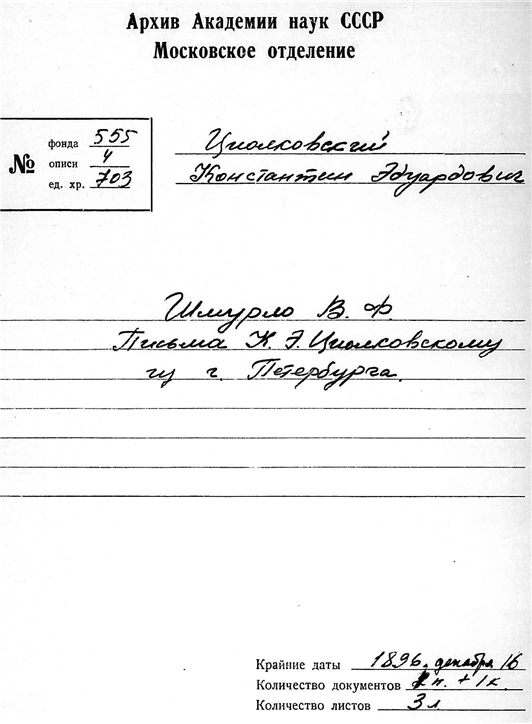 Архив Академии наук СССР
Московское отделение
№
фонда 555
описи 4
ед. хр. 703
Циолковский
Константин Эдуардович
Шмурло В. Ф.
Письма К. Э. Циолковскому
из г. Петербурга.
Крайние даты 1896, декабря 16
Количество документов п. + 1к.
Количество листов 3 л.